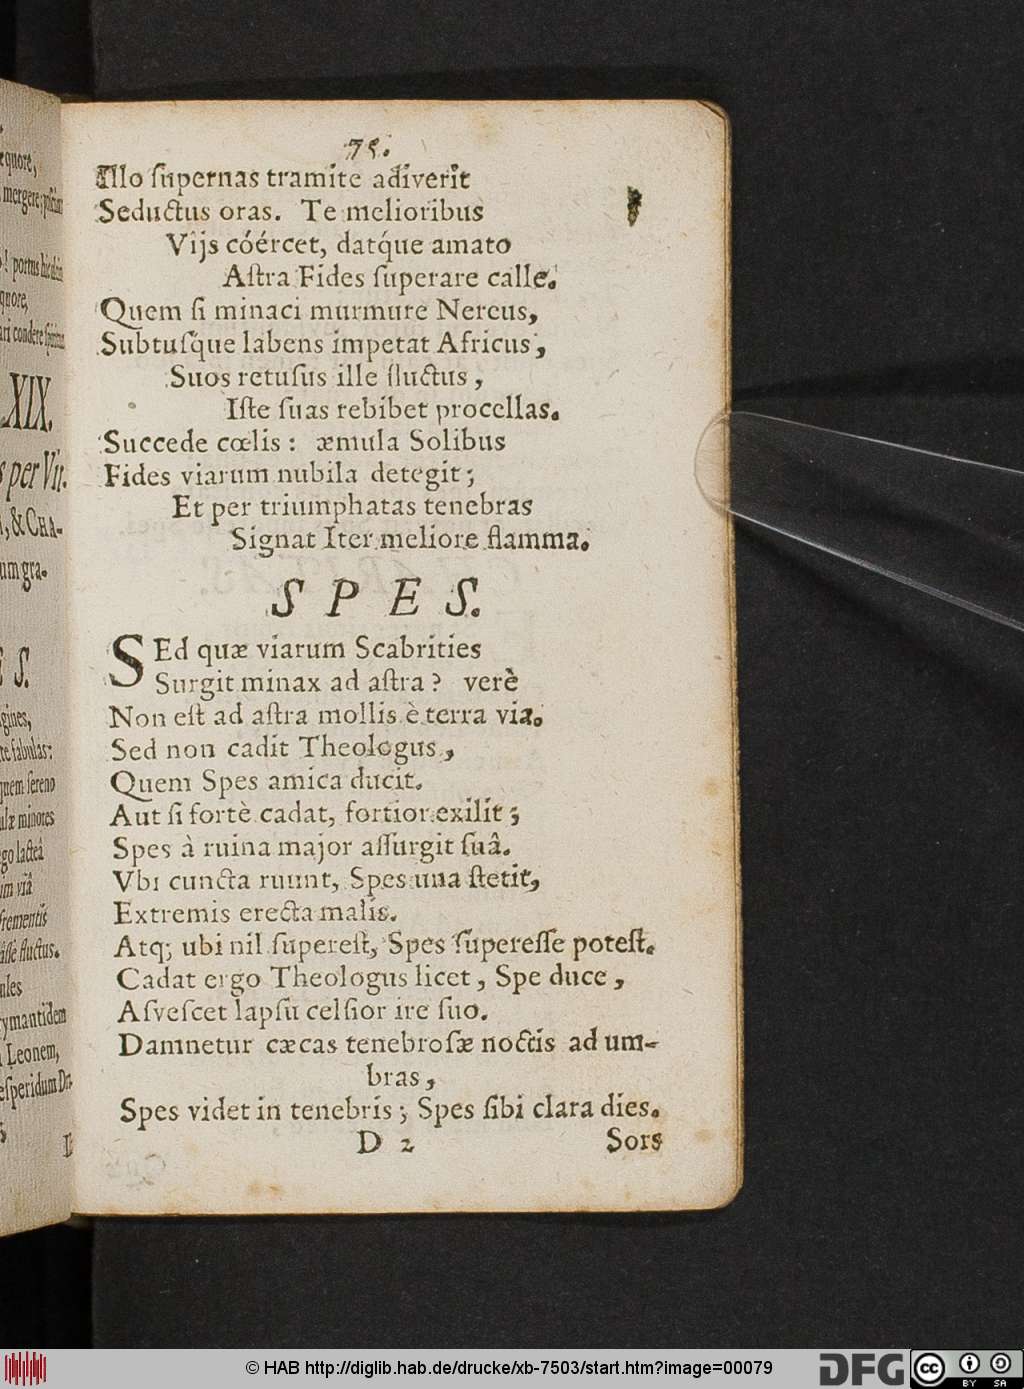 75.
Illo ſupernas tramite adiverit
Seductus oras. Te melioribus
Vijs cóércet, datq́ue amato
Aſtra Fides ſuperare calle.
Quem ſi minaci murmure Nereus,
Subtuſq́ue labens impetat Africus,
Suos retuſus ille fluctus,
Iſte ſuas rebibet procellas.
Succede cœlis: æmula Solibus
Fides viarum nubila detegit;
Et per triumphatas tenebras
Signat Iter meliore flamma.
SPES.
SEd quæ viarum Scabrities
Surgit minax ad aſtra? verè
Non eſt ad aſtra mollis è terra via.
Sed non cadit Theologus,
Quem Spes amica ducit.
Aut ſi fortè cadat, fortior exilit;
Spes à ruina major aſſurgit ſuâ.
Vbi cuncta ruunt, Spes una ſtetit,
Extremis erecta malis.
Atq; ubi nil ſupereſt, Spes ſupereſſe poteſt.
Cadat ergo Theologus licet, Spe duce,
Aſveſcet lapſu celſior ire ſuo.
Damnetur cæcas tenebroſæ noctis ad um-
bras,
Spes videt in tenebris; Spes ſibi clara dies.
D 2 Sors
equore,
mergere;
portus
quore,
ari condere
XIX.
s per Vir.
, & CHA-
um gra-
S.
gines,
te fabulas:
quem ſereno
ulæ minores
go lacteâ
im viâ
frementis
âſſè fluctus.
ales
rymantidem
Leonem,
eſperidum Dra-
© HAB http://diglib.hab.de/drucke/xb-7503/start.htm?image=00079
DFG
cc BY SA